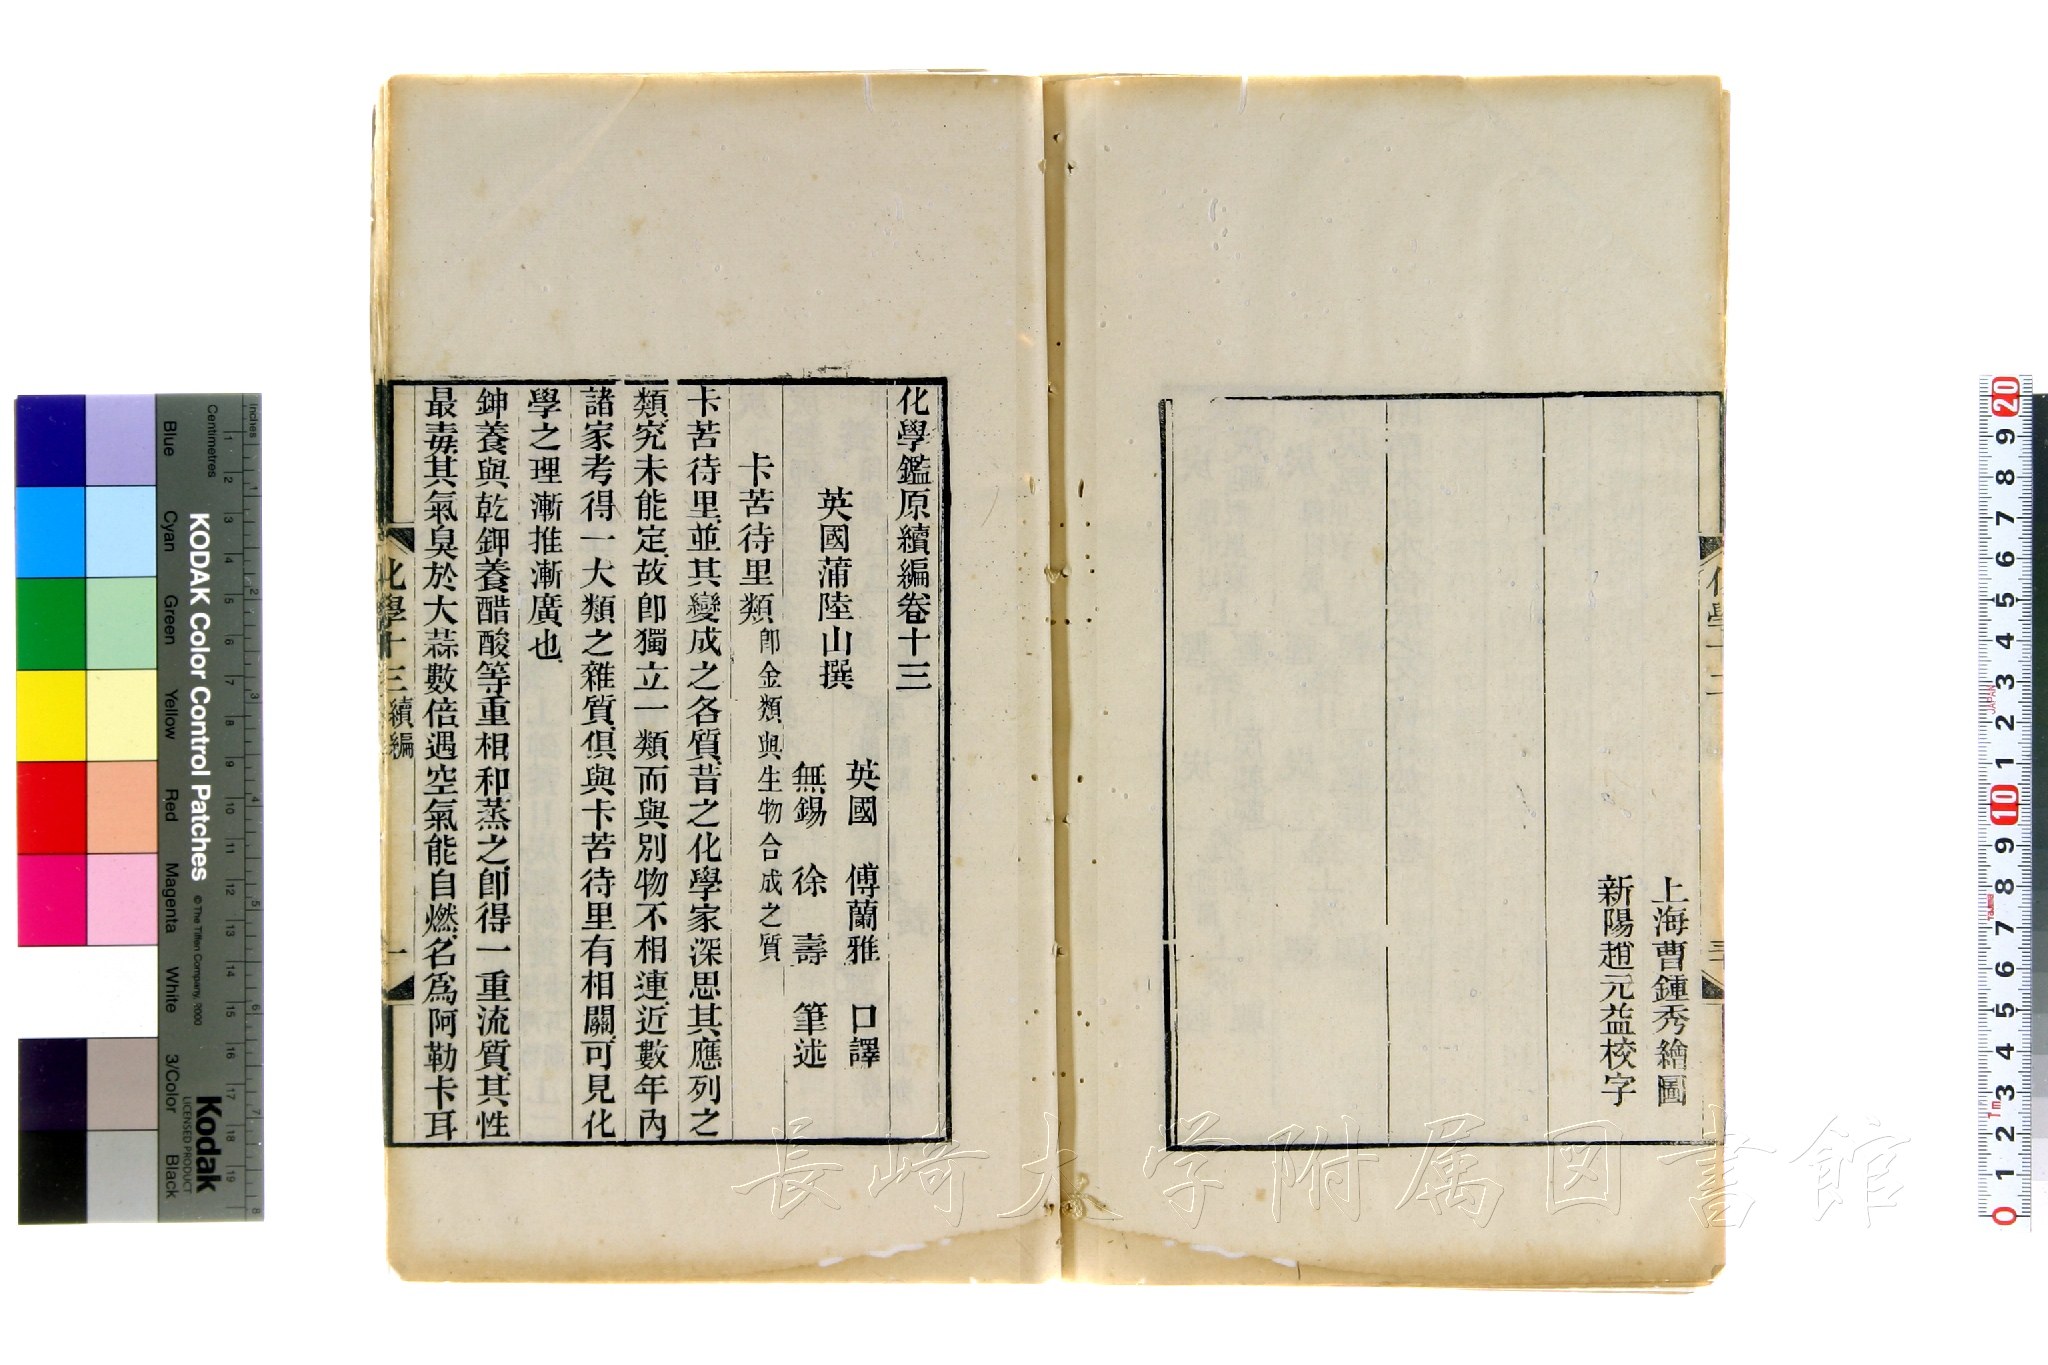 上海曹鍾秀繪圖
新陽趙元益校字
化學鑑原續編卷十三
英國蒲陸山撰
英國 傅蘭雅 口譯
無錫 徐壽 筆述
卡苦待里類 卽金類與生物合成之質
卡苦待里並其變成之各質昔之化學家深思其應列之
類究未能定故卽獨立一類而與別物不相連近數年內
諸家考得一大類之雜質俱與卡苦待里有相關可見化
學之理漸推漸廣也
鉮養與乾鉀養醋酸等重相和蒸之卽得一重流質其性
最毒其氣臭於大蒜數倍遇空氣能自燃名爲阿勒卡耳
化學十三 續編
一
長崎大学附属図書館
KODAK Color Control Patches
© The Tiffen Company, 2000
Kodak
LICENSED PRODUCT
Blue
Cyan
Green
Yellow
Red
Magenta
White
3/Color
Black
Inches
1 2 3 4 5 6 7 8
Centimetres
1 2 3 4 5 6 7 8 9 10 11 12 13 14 15 16 17 18 19
20
9
8
7
6
5
4
3
2
1
10
9
8
7
6
5
4
3
2
1
0
JAPAN